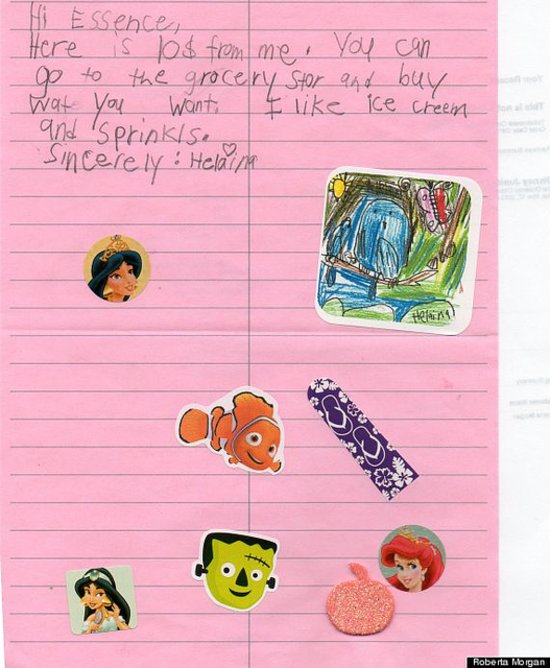 Hi Essence,
Here is 10$ from me. You can
go to the grocery stor and buy
wat you want. I like ice creem
and sprinkls.
Sincerely : Helaina
Helaina
Roberta Morgan